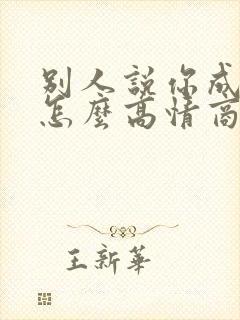 别人説你成
怎麽高情商
王新華